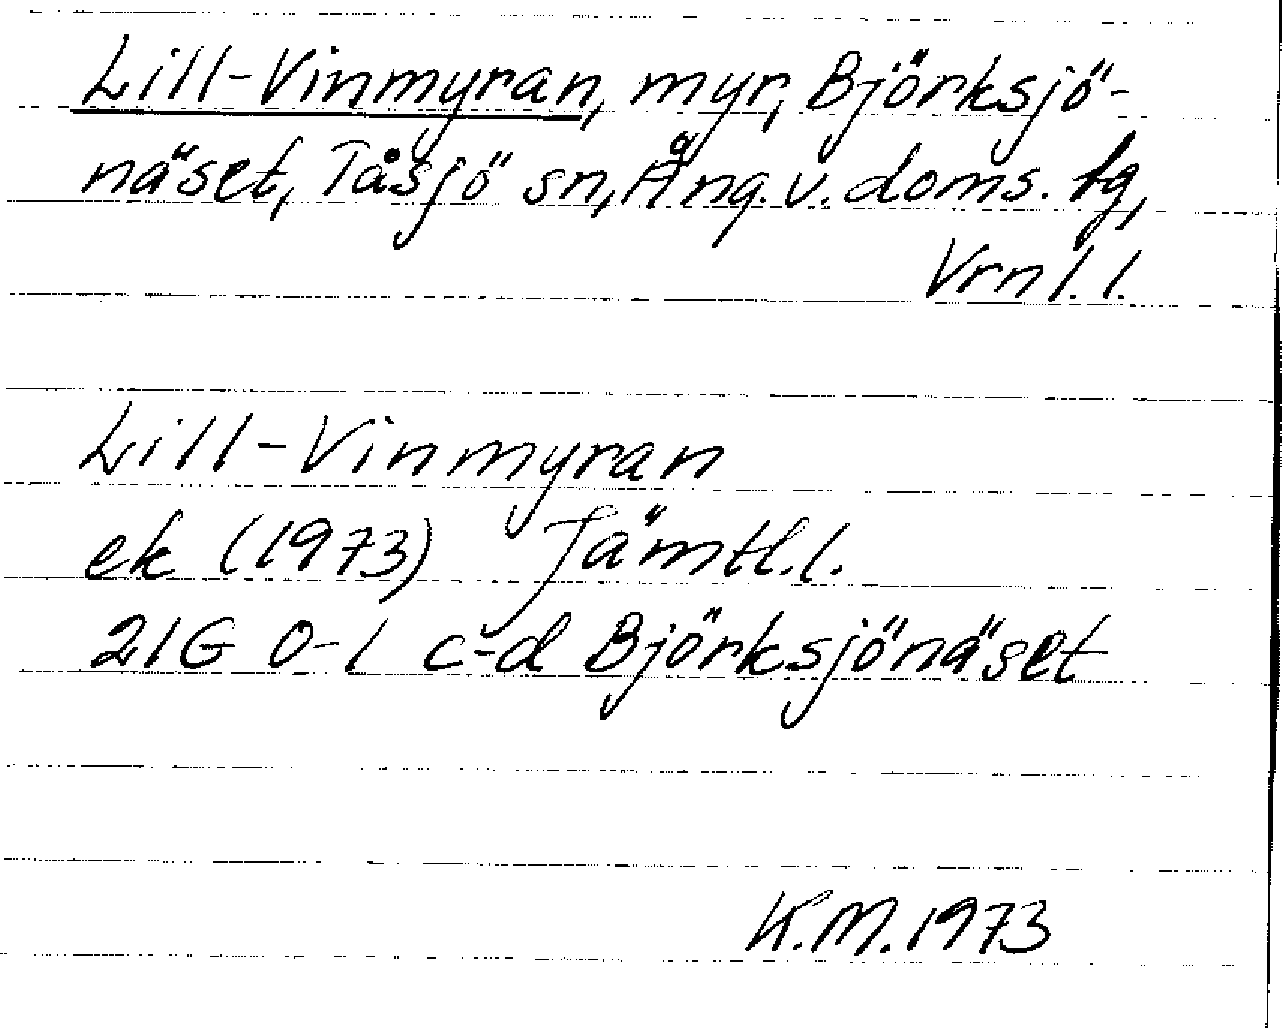 Lill-Vinmyran, myr, Björksjö-
näset, Tåsjö sn, Ång. v. doms. tg,
Vrnl.l.
Lill-Vinmyran
ek (1973) Jämtl.l.
21G 0-1 c-d Björksjönäset
K.M. 1973